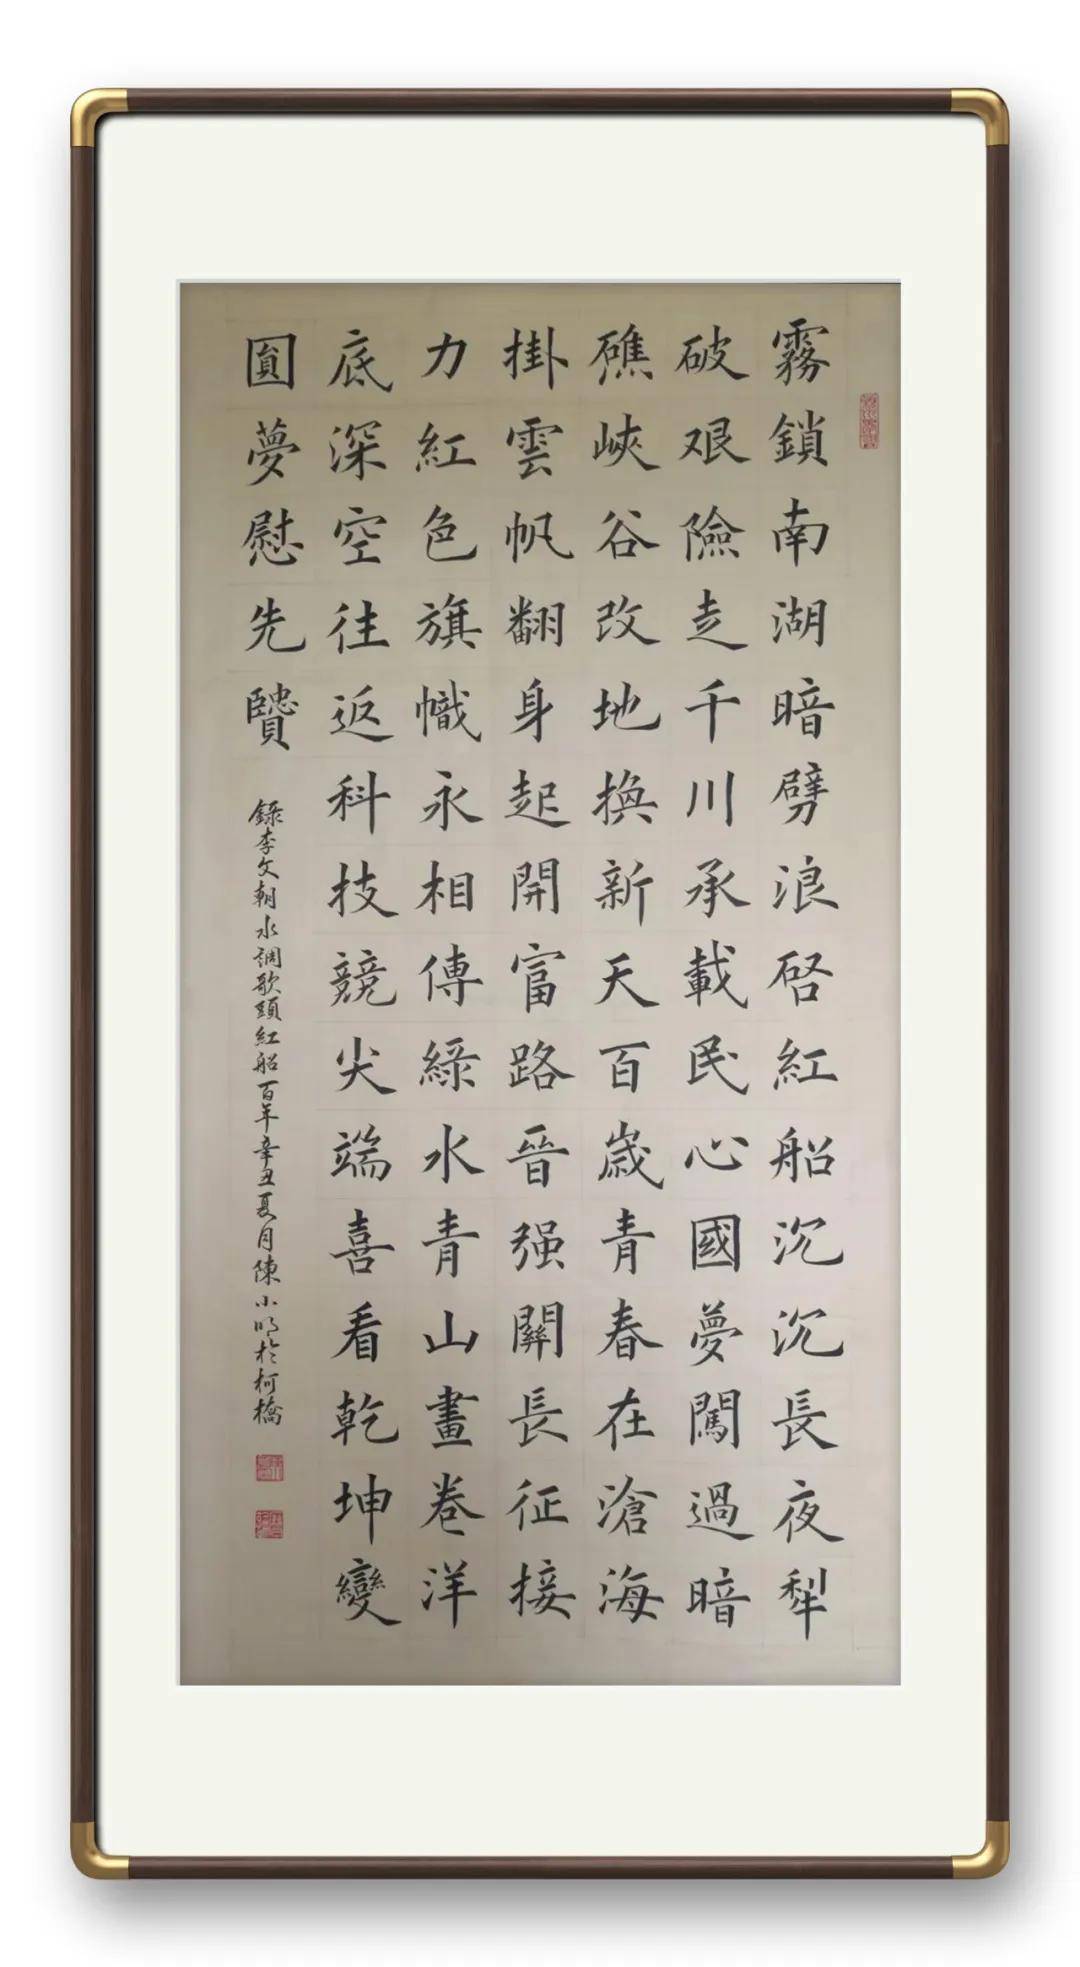 霧鎖南湖暗劈浪啓紅船沉沉長夜犁
破艰險走千川承載民心國夢闖過暗
礁峽谷改地換新天百歲青春在滄海
掛雲帆翻身起開富路晉强關長征接
力紅色旗幟永相傳綠水青山畫卷洋
底深空往返科技競尖端喜看乾坤變
圓夢慰先賢
錄李文朝水調歌頭紅船百年辛丑夏月陳小明於柯橋